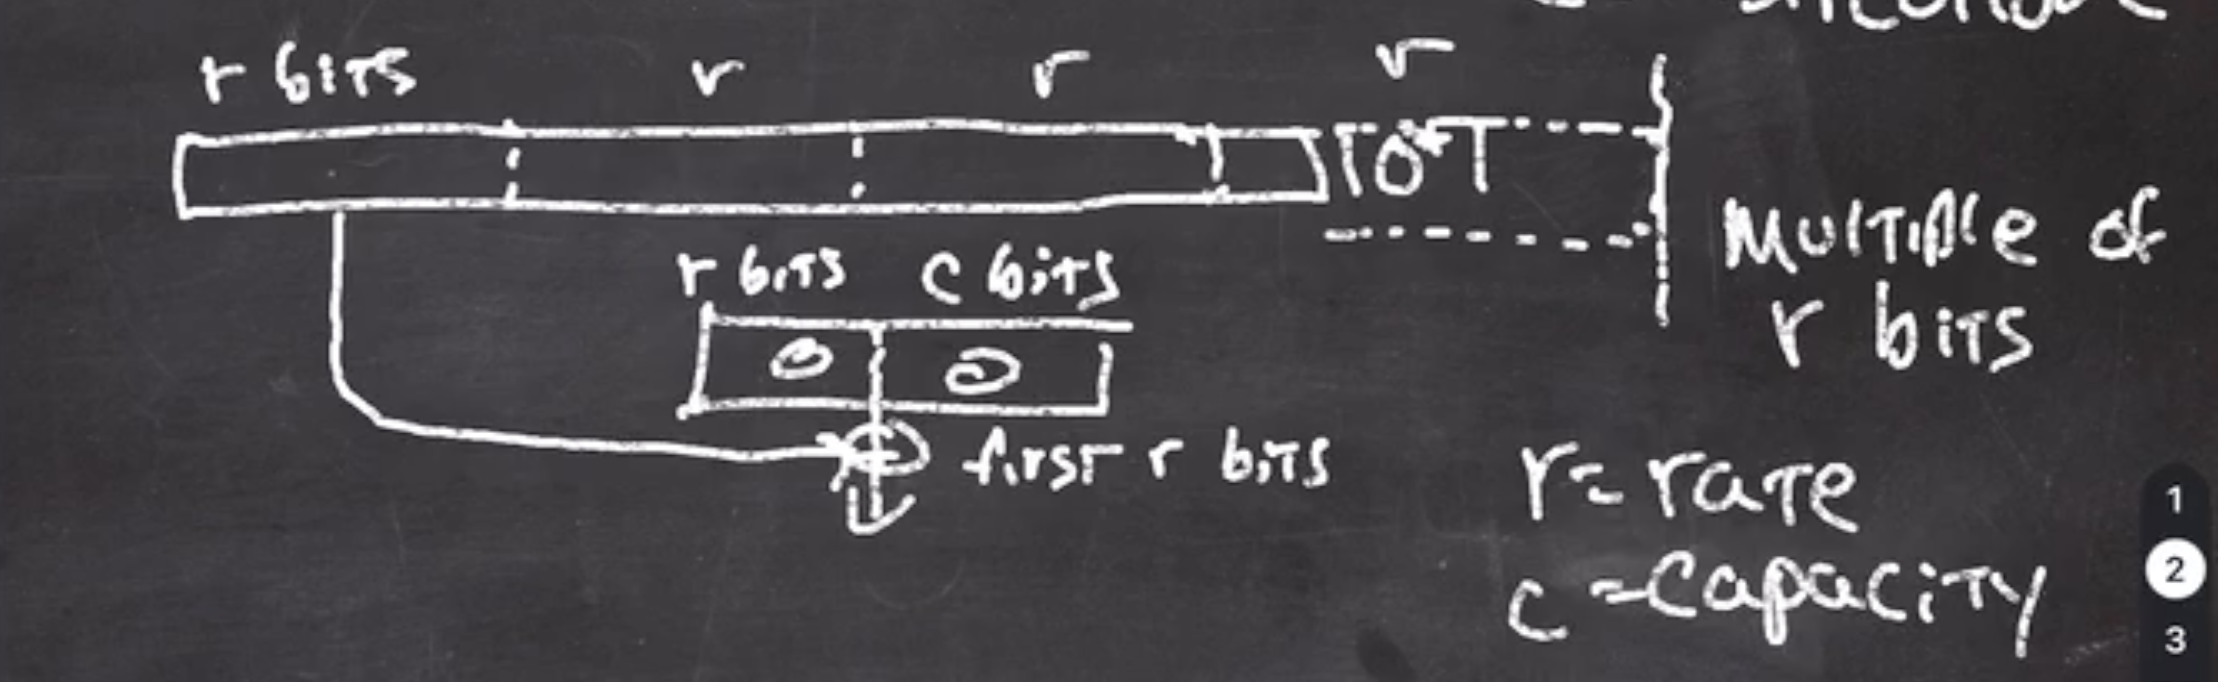 r bits r r r
10*1
Multiple of
r bits
r bits c bits
0 0
first r bits
r = rate
c = capacity
1
2
3